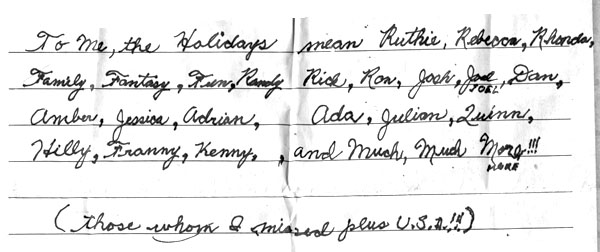 To Me, the Holidays mean Ruthie, Rebecca, Rhonda,
Family, Fantasy, Fun, Randy Rich, Ron, Josh, Joel, Dan,
JOEL
Amber, Jessica, Adrian, Ada, Julian, Quinn,
Hilly, Franny, Kenny, , and Much, Much More!!!
MORE
(those whom I missed plus U.S.A!!!)